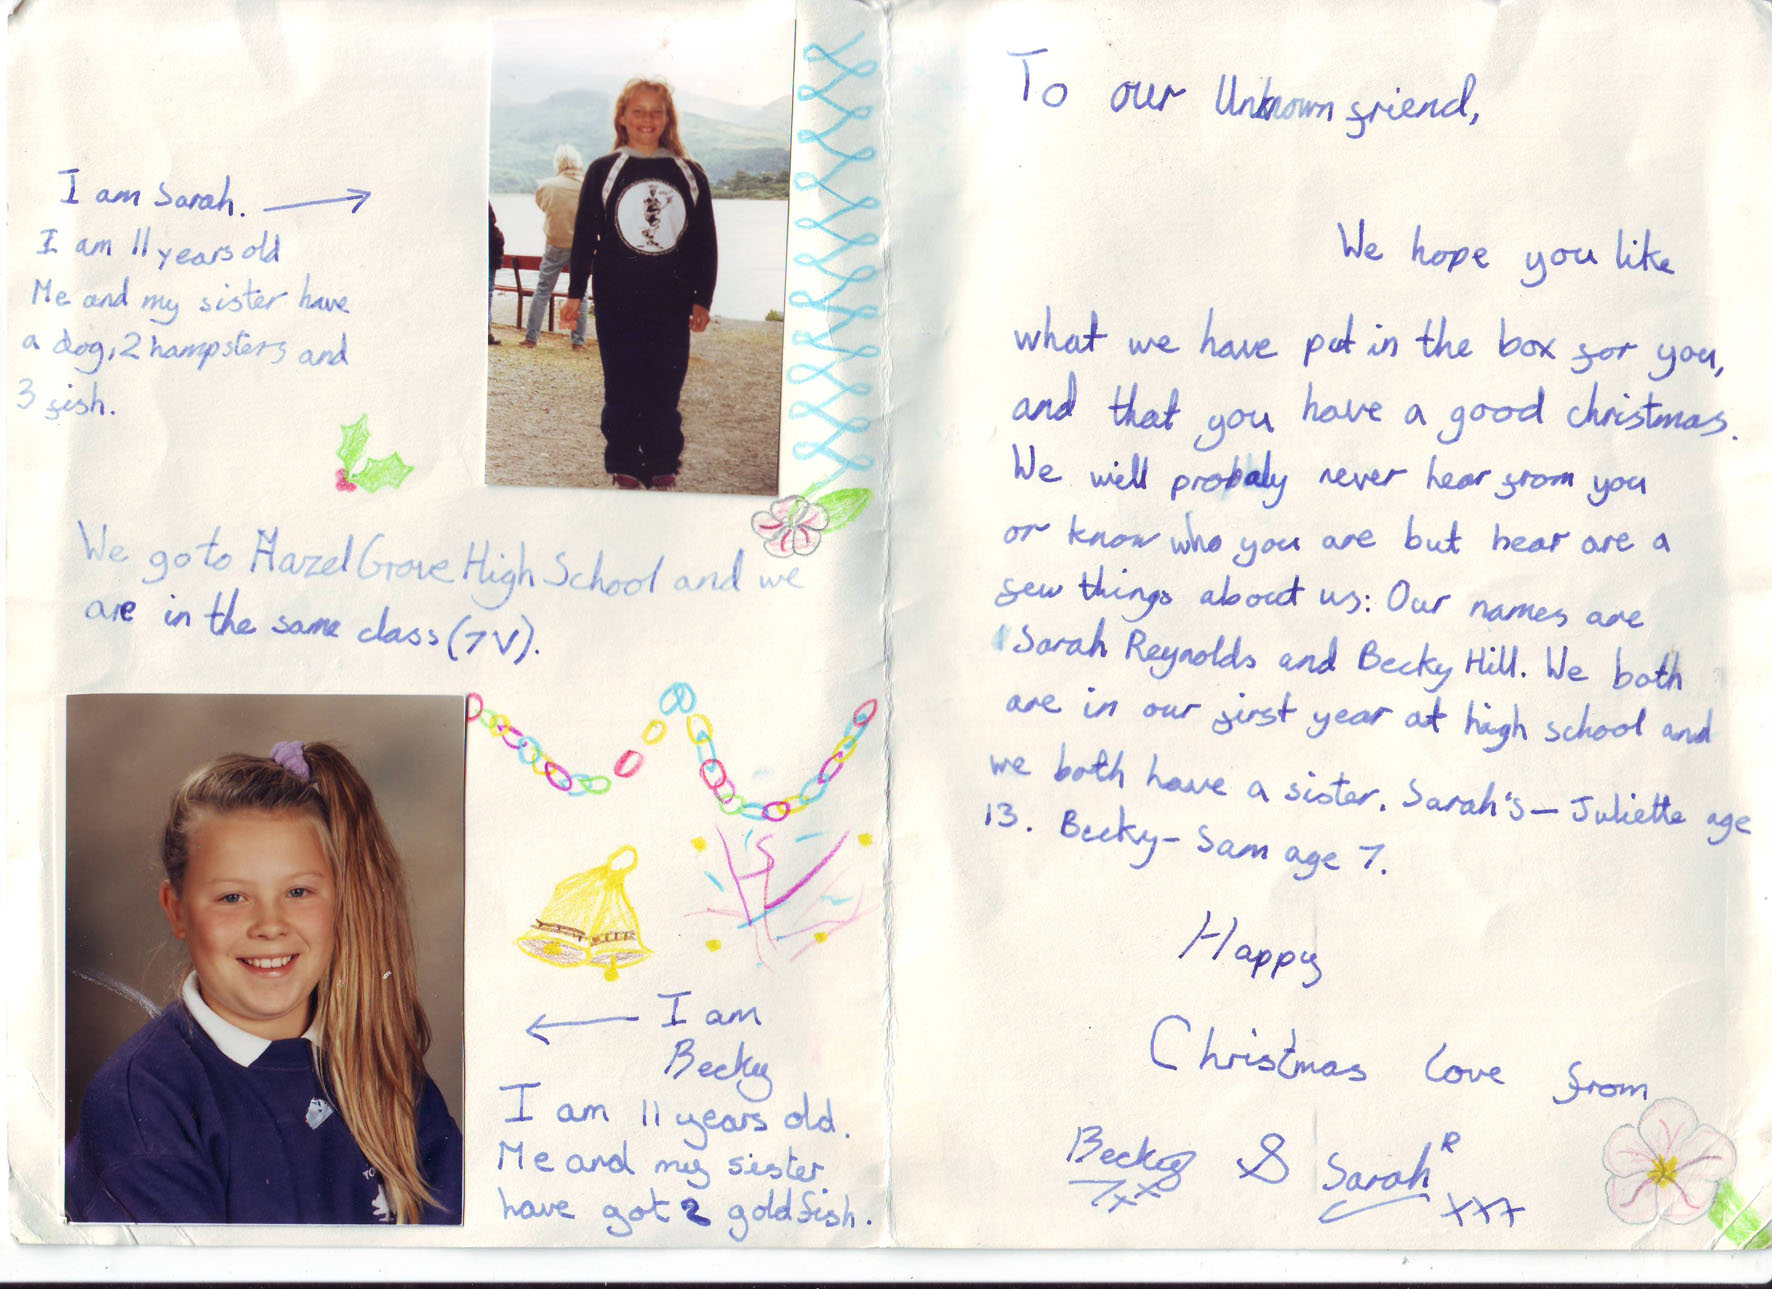 I am Sarah.
I am 11 years old
Me and my sister have
a dog, 2 hampsters and
3 fish.
We go to Hazel Grove High School and we
are in the same class (7V).
I am
Becky
I am 11 years old.
Me and my sister
have got 2 goldfish.
To our Unknown friend,
We hope you like
what we have put in the box for you,
and that you have a good christmas.
We will probaly never hear from you
or know who you are but hear are a
few things about us: Our names are
Sarah Reynolds and Becky Hill. We both
are in our first year at high school and
we both have a sister. Sarah's - Juliette age
13. Becky - Sam age 7.
Happy
Christmas love from
Becky & Sarah R
xx xxx